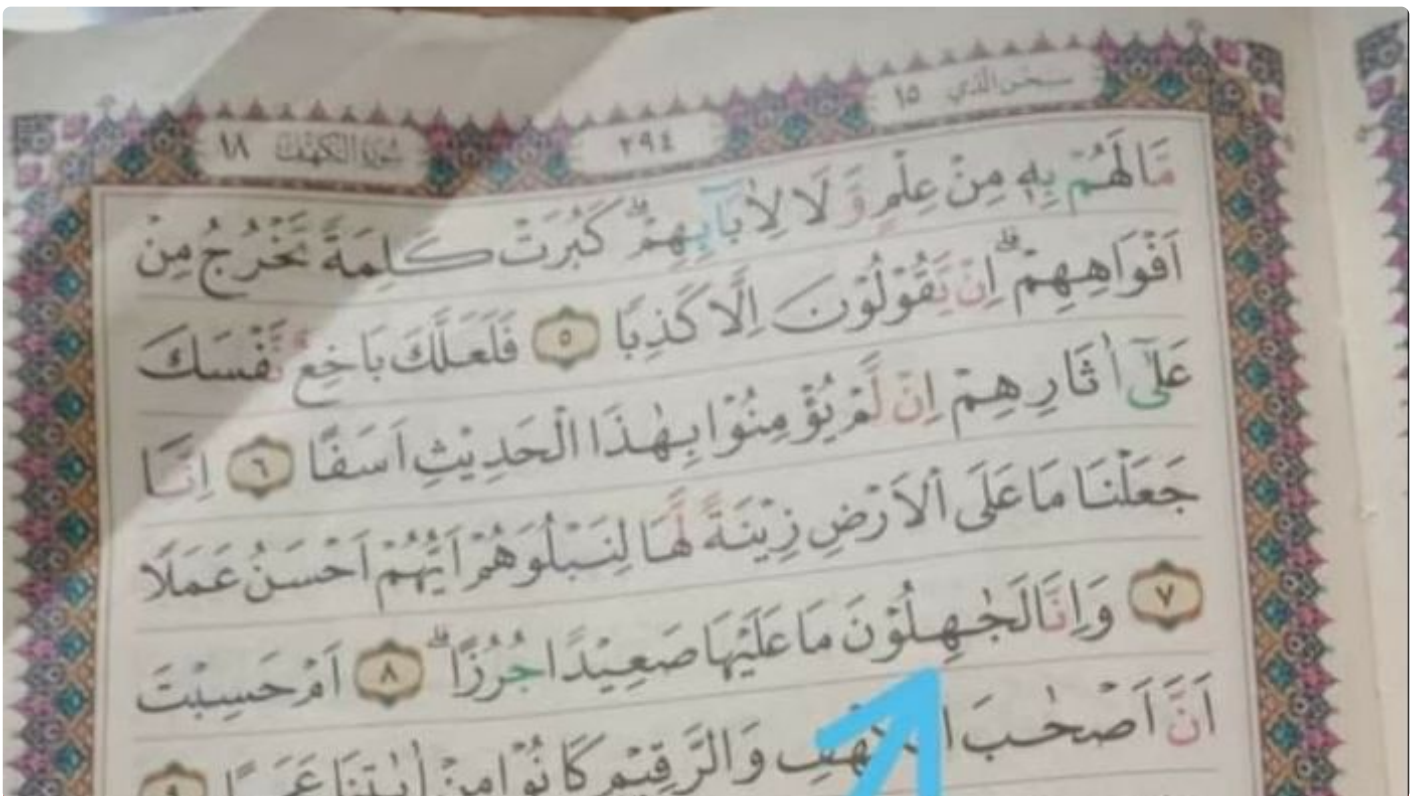 سبحن الذي ١٥
٢٩٤
سورة الكهف ١٨
مَا لَهُمْ بِهٖ مِنْ عِلْمٍ وَّلَا لِاٰبَآىِٕهِمْۗ كَبُرَتْ كَلِمَةً تَخْرُجُ مِنْ
اَفْوَاهِهِمْۗ اِنْ يَّقُوْلُوْنَ اِلَّا كَذِبًا ٥ فَلَعَلَّكَ بَاخِعٌ نَّفْسَكَ
عَلٰٓى اٰثَارِهِمْ اِنْ لَّمْ يُؤْمِنُوْا بِهٰذَا الْحَدِيْثِ اَسَفًا ٦ اِنَّا
جَعَلْنَا مَا عَلَى الْاَرْضِ زِيْنَةً لَّهَا لِنَبْلُوَهُمْ اَيُّهُمْ اَحْسَنُ عَمَلًا
٧ وَاِنَّا لَجٰهِلُوْنَ مَا عَلَيْهَا صَعِيْدًا جُرُزًاۗ ٨ اَمْ حَسِبْتَ
اَنَّ اَصْحٰبَ الْكَهْفِ وَالرَّقِيْمِ كَانُوْا مِنْ اٰيٰتِنَا عَجَبًا ٩